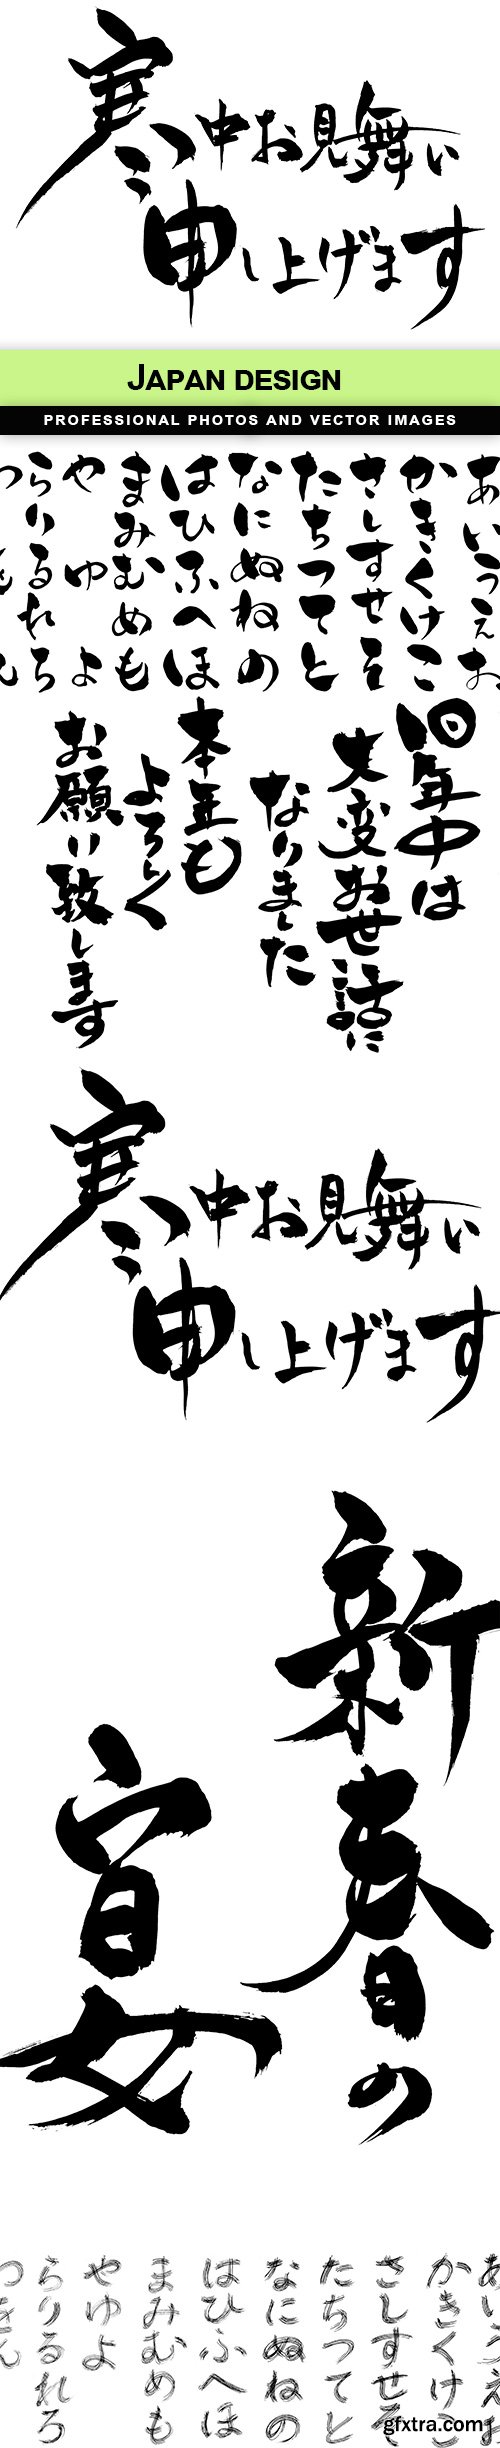 寒中お見舞い
申し上げます
JAPAN DESIGN
PROFESSIONAL PHOTOS AND VECTOR IMAGES
あいうえお
かきくけこ
さしすせそ
たちつてと
なにぬねの
はひふへほ
まみむめも
やゆよ
らりるれろ
旧年中は
大変お世話に
なりました
本年も
よろしく
お願い致します
寒中お見舞い
申し上げます
新春の
宴
あいうえお
かきくけこ
さしすせそ
たちつてと
なにぬねの
はひふへほ
まみむめも
やゆよ
らりるれろ
わをん
gfxtra.com